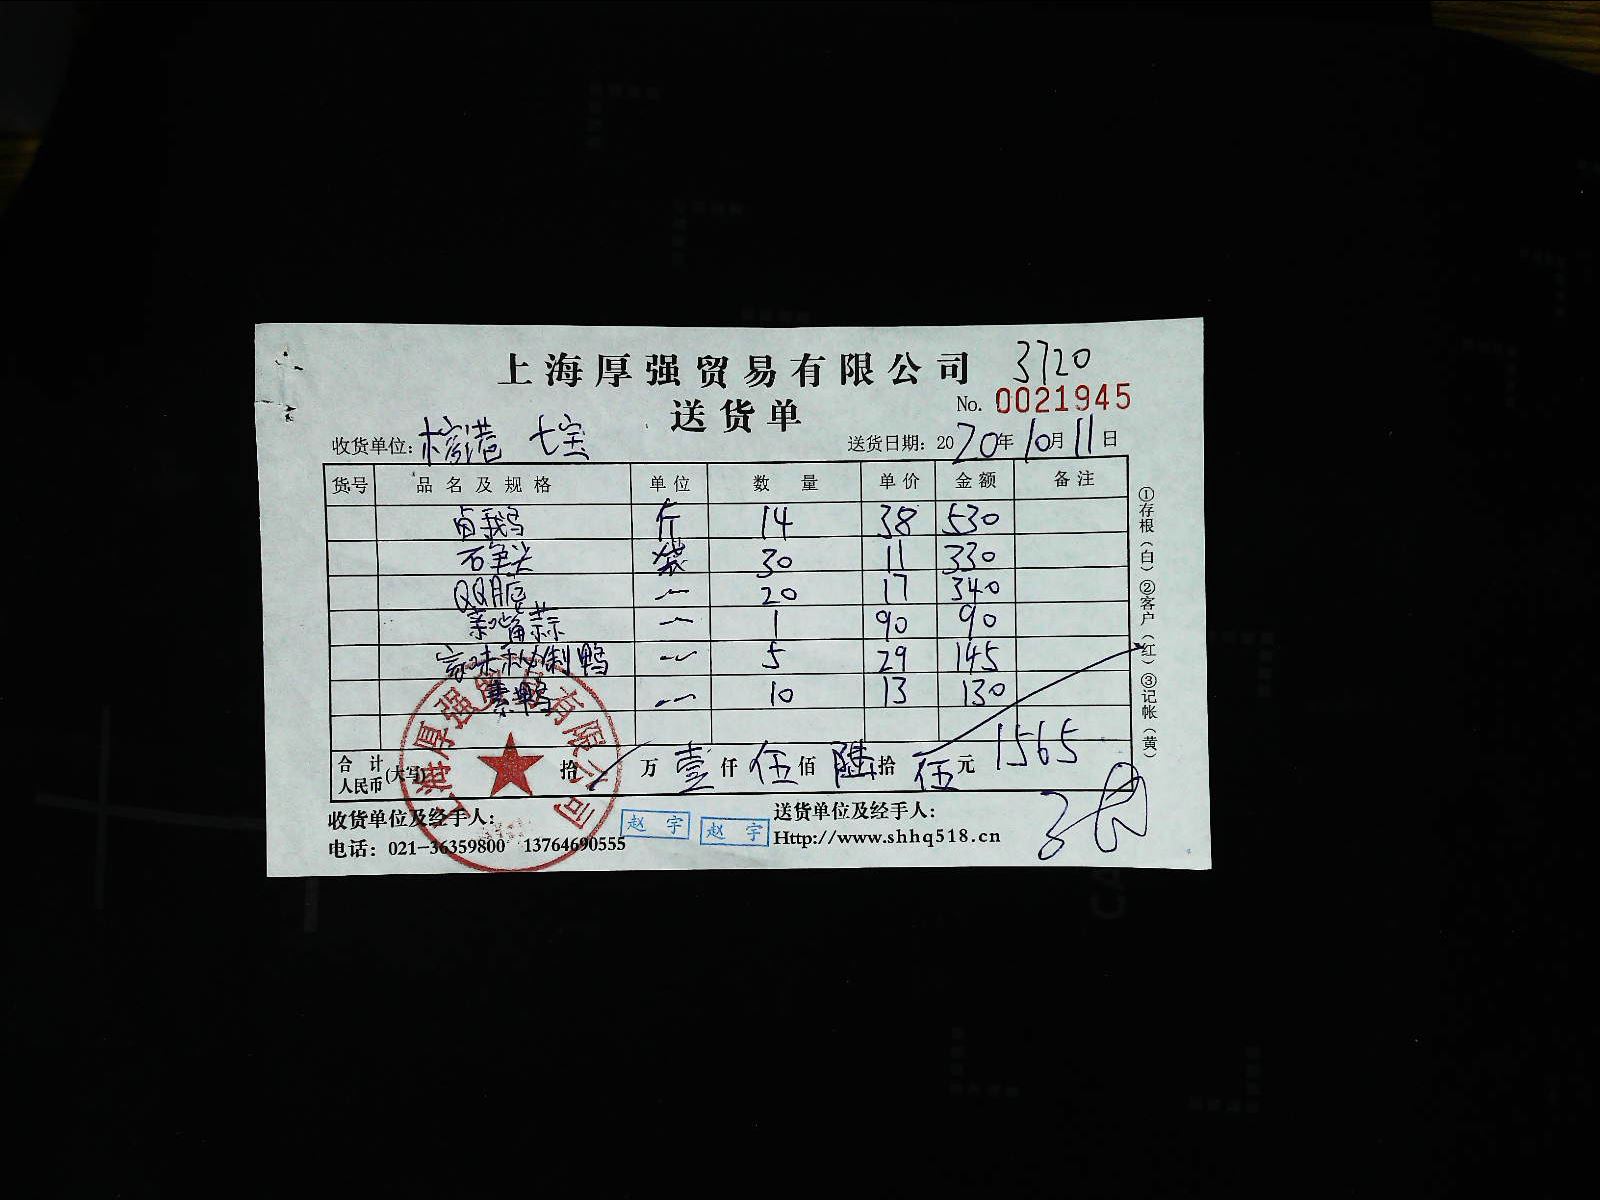 上海厚强贸易有限公司 3720
送货单 No. 0021945
收货单位: 七宝 送货日期: 2020年10月11日
货号 品名及规格 单位 数量 单价 金额 备注
卤鹅 斤 14 38 530
袋 30 11 330
20 17 340
1 90 90
制鸭 5 29 145
素鸭 10 13 130
合计人民币(大写) 拾 万 壹仟 伍佰 陆拾 伍元 1565
收货单位及经手人: 赵宇 赵宇 送货单位及经手人:
电话: 021-36359800 13764690555 Http://www.shhq518.cn
①存根(白)②客户(红)③记帐(黄)
上海厚强贸易有限公司